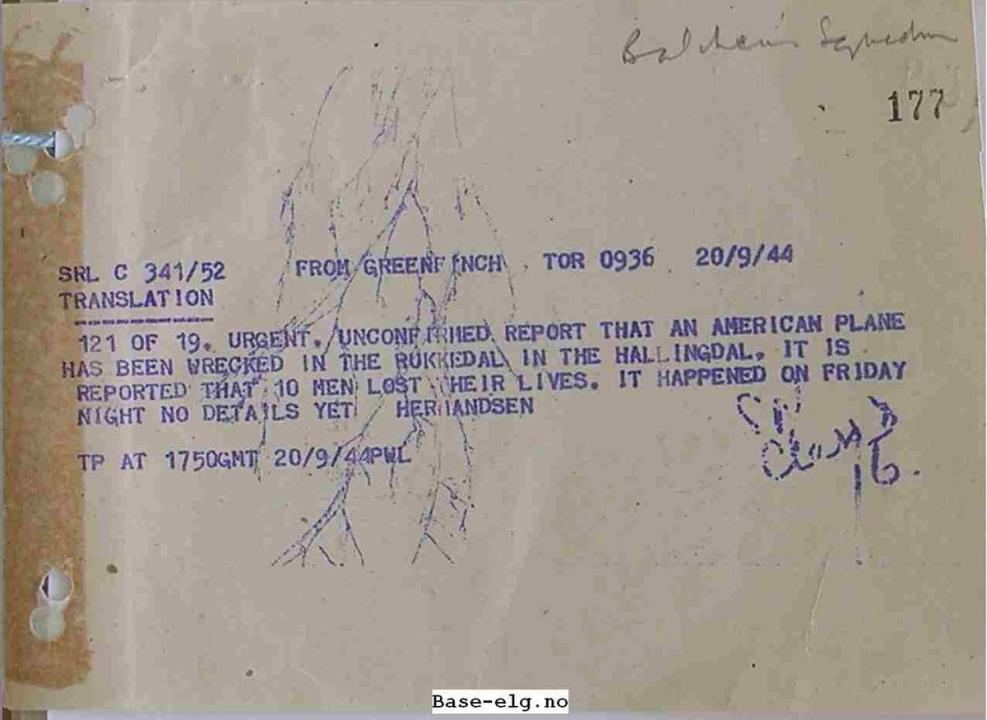 Balchen's Squadron
177
SRL C 341/52 FROM GREENFINCH . TOR 0936 20/9/44
TRANSLATION
121 OF 19. URGENT. UNCONFIRMED REPORT THAT AN AMERICAN PLANE
HAS BEEN WRECKED IN THE RUKKEDAL IN THE HALLINGDAL. IT IS
REPORTED THAT 10 MEN LOST THEIR LIVES. IT HAPPENED ON FRIDAY
NIGHT NO DETAILS YET HERMANDSEN
TP AT 1750GMT 20/9/44PWL
Base-elg.no